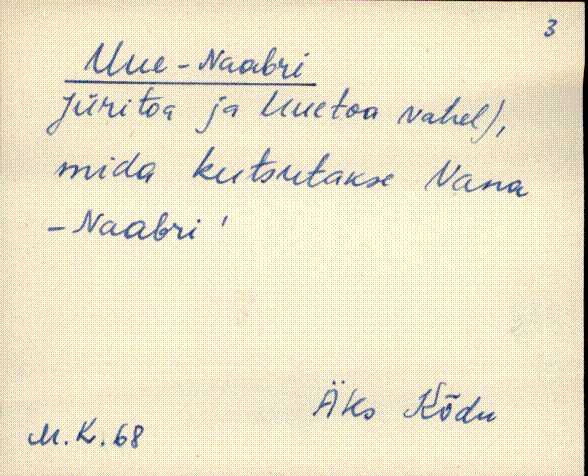 3
Uue-Naabri
Jüritoa ja Uuetoa vahel),
mida kutsutakse Vana
-Naabri'
Äks Kõdu
M.K.68